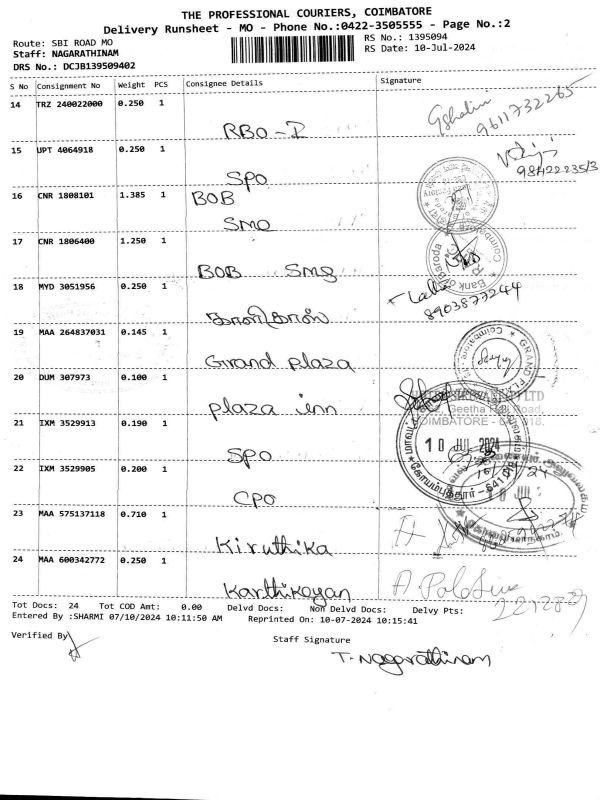 THE PROFESSIONAL COURIERS, COIMBATORE
Delivery Runsheet - MO - Phone No.:0422-3505555 - Page No.:2
Route: SBI ROAD MO
RS No.: 1395094
Staff: NAGARATHINAM
RS Date: 10-Jul-2024
DRS No.: DCJB139509402
S No Consignment No Weight PCS Consignee Details Signature
14 TRZ 240022000 0.250 1
RBO-D
9611732265
15 UPT 4064918 0.250 1
SPO
16 CNR 1808101 1.385 1 BOB
SMO
17 CNR 1806400 1.250 1
BOB SMS
Bank of Baroda
Coimbatore
18 MYD 3051956 0.250 1
8903877244
19 MAA 264837031 0.145 1
Grand plaza
20 DUM 307973 0.100 1
plaza inn
LTD
Geetha Hall Road,
COIMBATORE - 641 018.
21 IXM 3529913 0.190 1
SPO
10 JUL 2024
22 IXM 3529905 0.200 1
CPO
23 MAA 575137118 0.710 1
Kiruthika
24 MAA 600342772 0.250 1
Karthikeyan
Tot Docs: 24 Tot COD Amt: 0.00 Delvd Docs: Non Delvd Docs: Delvy Pts:
Entered By :SHARMI 07/10/2024 10:11:50 AM Reprinted On: 10-07-2024 10:15:41
Verified By
Staff Signature
T. Nagarathinam